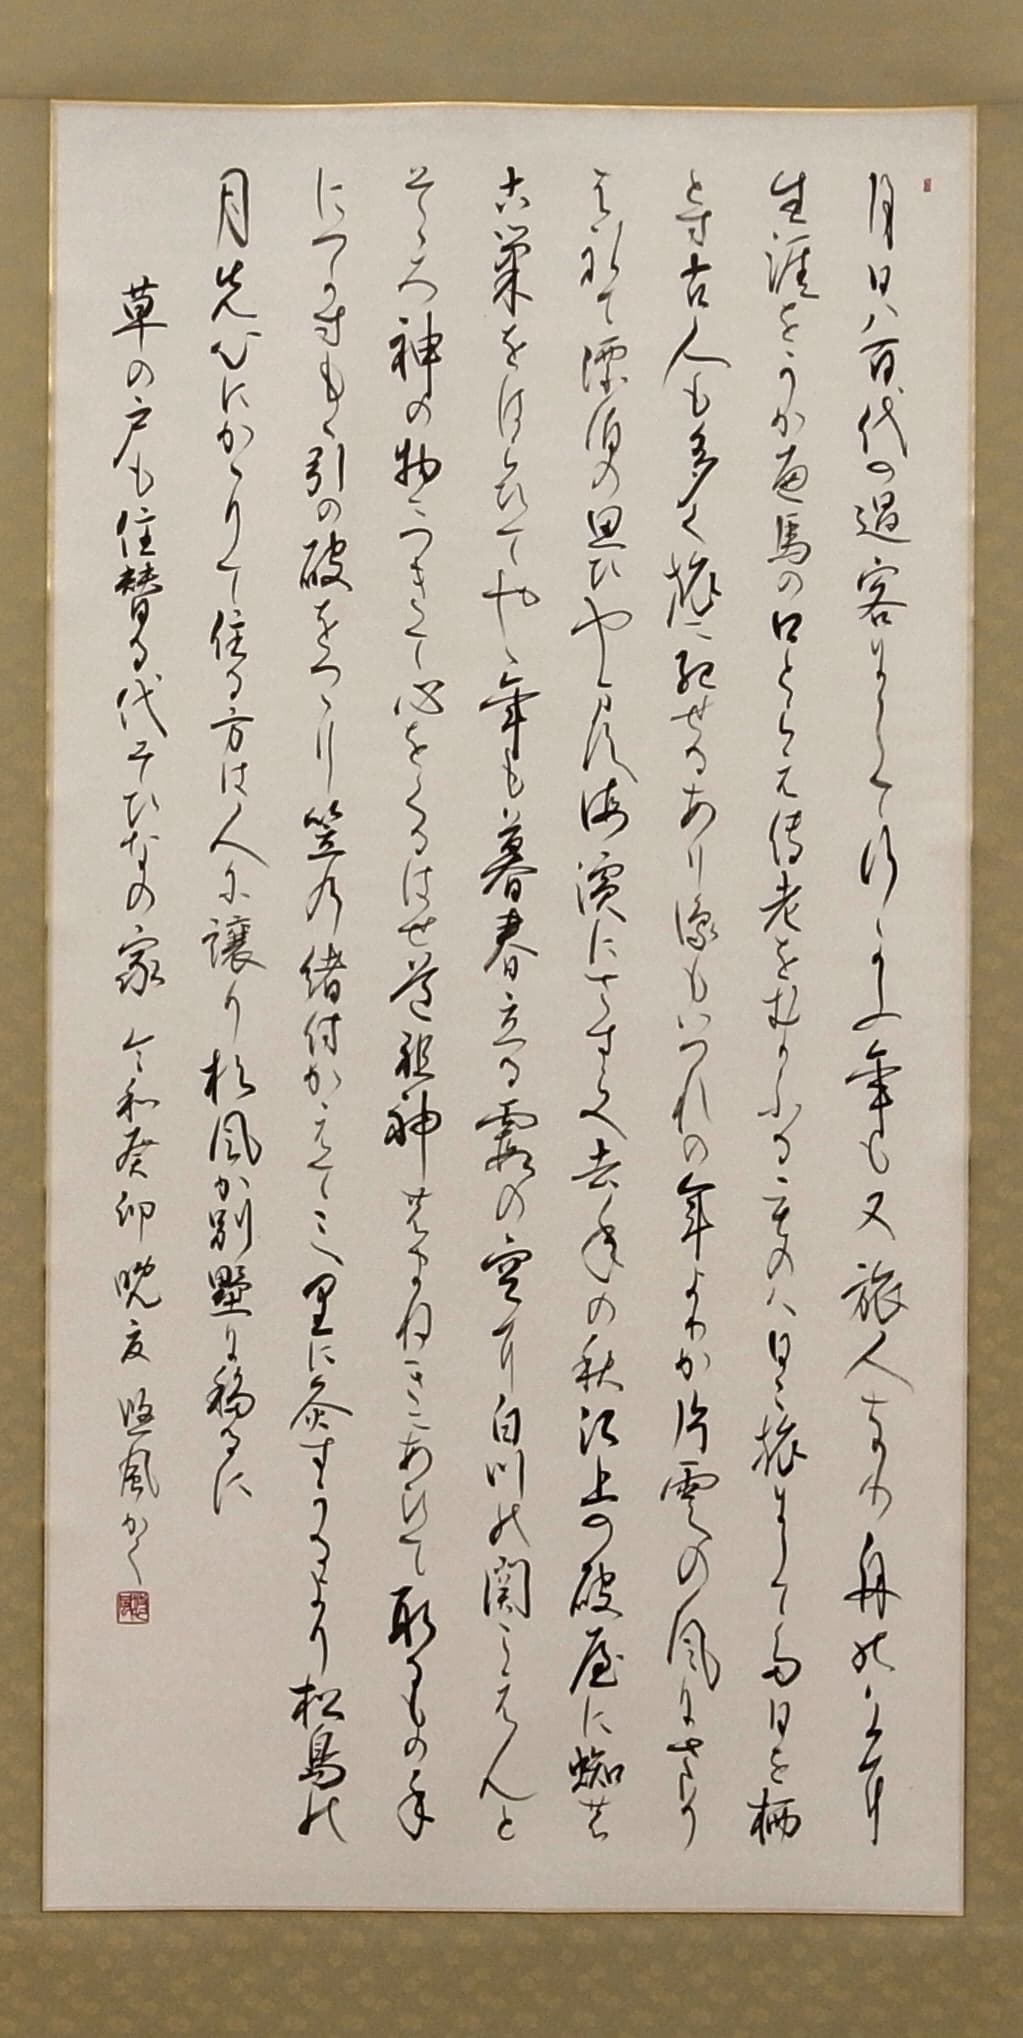 月日ハ百代の過客にして行かふ年も又旅人なり舟の上に
生涯をうかへ馬の口とらえ老をむかふる者ハ日々旅にして旅を栖
とす古人も多く旅に死せるあり予もいつれの年よりか片雲の風にさそ
はれて漂泊の思ひやます海濱にさすらへ去年の秋江上の破屋に蜘の
古巣をはらひてやゝ年も暮春立る霞の空に白川の関こえんと
そゝろ神の物につきて心をくるはせ道祖神のまねきにあひて取もの手
につかすもゝ引の破をつゝり笠の緒付かえて三里に灸すうるより松島の
月先心にかゝりて住る方は人に譲り杉風か別墅に移るに
草の戸も住替る代そひなの家 令和癸卯晩夏 風かく